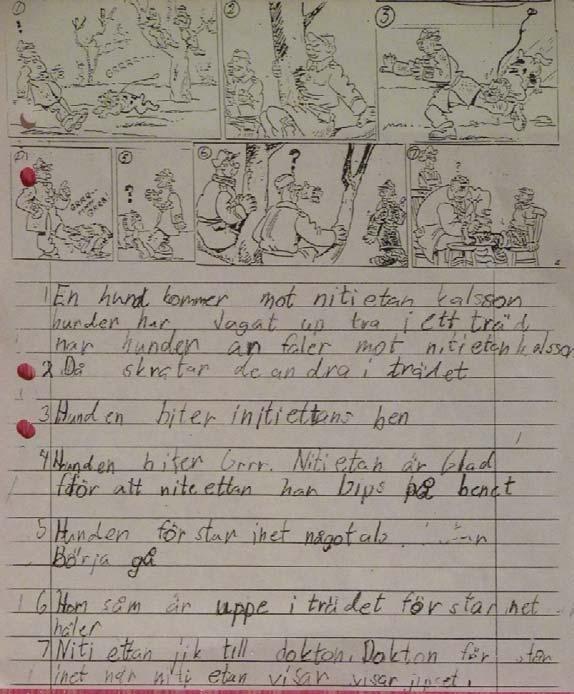 1
?
GRRR-
2
3
4
GRRR-
GRRR!
5
?
6
?
7
?
1 En hund kommer mot nitietan kalsson
hunder har Jagat up tra i ett träd
nar hunden an faler mot nitietan kalsson
2 Då skratar de andra i trädet
3 Hunden biter i nitiettans ben
4 Hunden biter Grrr. Nitietan är Glad
fför att niteettan har Gips på benet
5 Hunden för star inet något als.
Börja gå
6 Hom såm är uppe i trädet för star inet
håler
7 Niti ettan jik till dokton. Dokton för står
inet nar niti etan visar visar jipset.